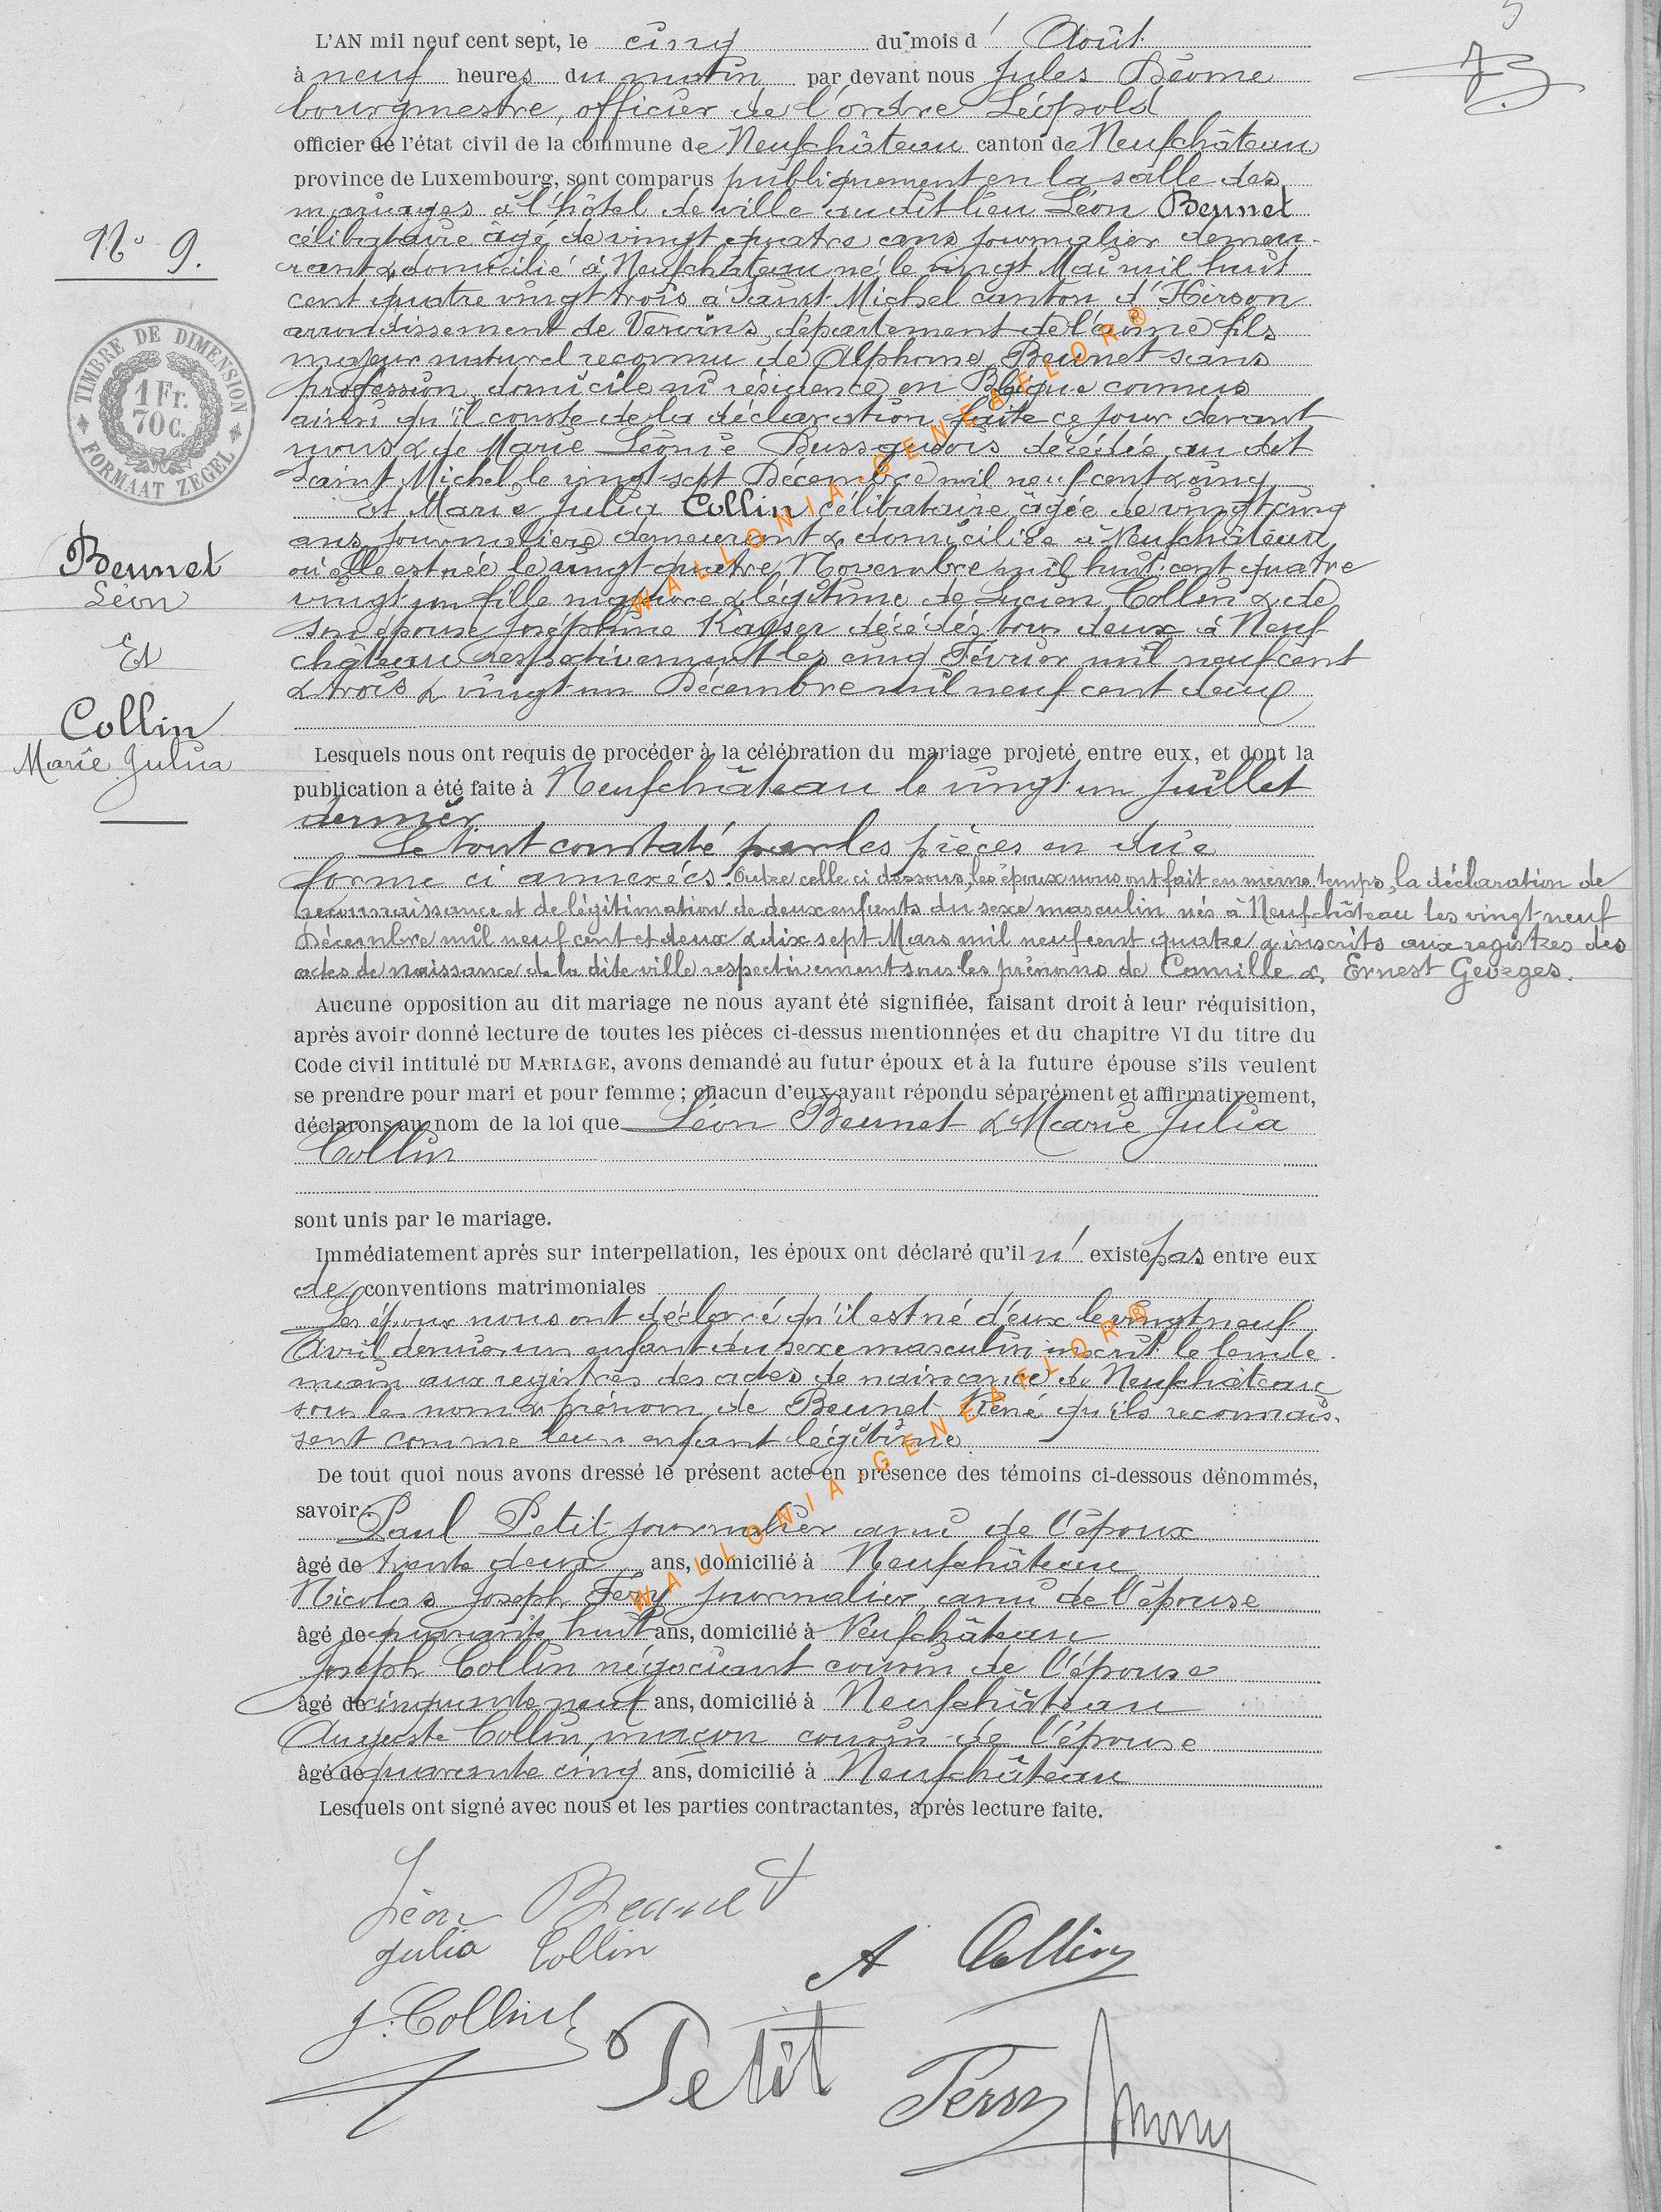 L'AN mil neuf cent sept, le cinq du mois d' Août
à neuf heures du matin par devant nous Jules
bourgmestre, officier de l'ordre Léopold
officier de l'état civil de la commune de Neufchâteau canton de Neufchâteau
province de Luxembourg, sont comparus publiquement en la salle des
mariages à l'hôtel de ville au dit lieu Léon Beunet
célibataire âgé de vingt quatre ans journalier demeu-
rant & domicilié à Neufchâteau né le vingt Mai mil huit
cent quatre vingt trois à Saint Michel canton d'Hirson
arrondissement de Vervins, département de l'aisne fils
majeur naturel reconnu de Alphonse Beunet sans
profession, domicile ni résidence en Blgique connus
ainsi qu'il conste de la déclaration faite ce jour devant
nous & de Marie Léonie décédée au dit
Saint Michel le vingt-sept Décembre mil neuf cent cinq
Et Marie Julia Collin célibataire âgée de vingt cinq
ans journalière demeurant & domiciliée à Neufchâteau
où elle est née le vingt-quatre Novembre mil huit cent quatre
vingt un fille majeure & légitime de Lucien Collin & de
son épouse Joséphine Kayser décédés tous deux à Neuf-
château respectivement les cinq Février mil neuf cent
& trois & vingt-un Décembre mil neuf cent deux
Lesquels nous ont requis de procéder à la célébration du mariage projeté entre eux, et dont la
publication a été faite à Neufchâteau le vingt un juillet
dernier
Le tout constaté par les pièces en due
forme ci annexées. Outre celle ci dessous, les époux nous ont fait en même temps, la déclaration de
reconnaissance et de légitimation de deux enfants du sexe masculin nés à Neufchâteau les vingt-neuf
Décembre mil neuf cent et deux & dix sept Mars mil neuf cent quatre & inscrits aux registres des
actes de naissance de la dite ville respectivement sous les prénoms de Camille & Ernest Georges.
Aucune opposition au dit mariage ne nous ayant été signifiée, faisant droit à leur réquisition,
après avoir donné lecture de toutes les pièces ci-dessus mentionnées et du chapitre VI du titre du
Code civil intitulé DU MARIAGE, avons demandé au futur époux et à la future épouse s'ils veulent
se prendre pour mari et pour femme ; chacun d'eux ayant répondu séparément et affirmativement,
déclarons au nom de la loi que Léon Beunet & Marie Julia
Collin
sont unis par le mariage.
Immédiatement après sur interpellation, les époux ont déclaré qu'il n' existe pas entre eux
de conventions matrimoniales
Les époux nous ont déclaré qu'il est né d'eux le vingt neuf
Avril dernier un enfant du sexe masculin inscrit le lende-
main aux registres des actes de naissance de Neufchâteau
sous les nom & prénom de Beunet René qu'ils reconnais-
sent comme leur enfant légitime
De tout quoi nous avons dressé le présent acte en présence des témoins ci-dessous dénommés,
savoir : Paul Petit journalier ami de l'époux
âgé de trente deux ans, domicilié à Neufchâteau
Nicolas Joseph Féry journalier ami de l'épouse
âgé de quarante huit ans, domicilié à Neufchâteau
Joseph Collin négociant cousin de l'épouse
âgé de cinquante neuf ans, domicilié à Neufchâteau
Auguste Collin, maçon cousin de l'épouse
âgé de quarante cinq ans, domicilié à Neufchâteau
Lesquels ont signé avec nous et les parties contractantes, après lecture faite.
Léon Beunet
Julia Collin
A Collin
J. Collin
Petit
No 9.
TIMBRE DE DIMENSION
1 Fr.
70 C.
FORMAAT ZEGEL
Beunet
Léon
Et
Collin
Marie Julia
WALLONIA-GENEAFLOR®
WALLONIA-GENEAFLOR®